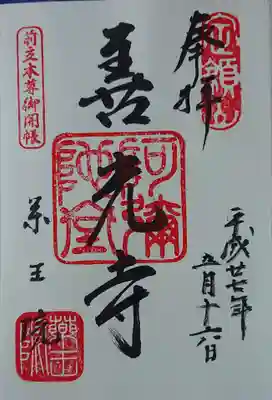 奉拝
平成廿七年
五月十六日
善光寺
薬王院
前立本尊御開帳
薬王院